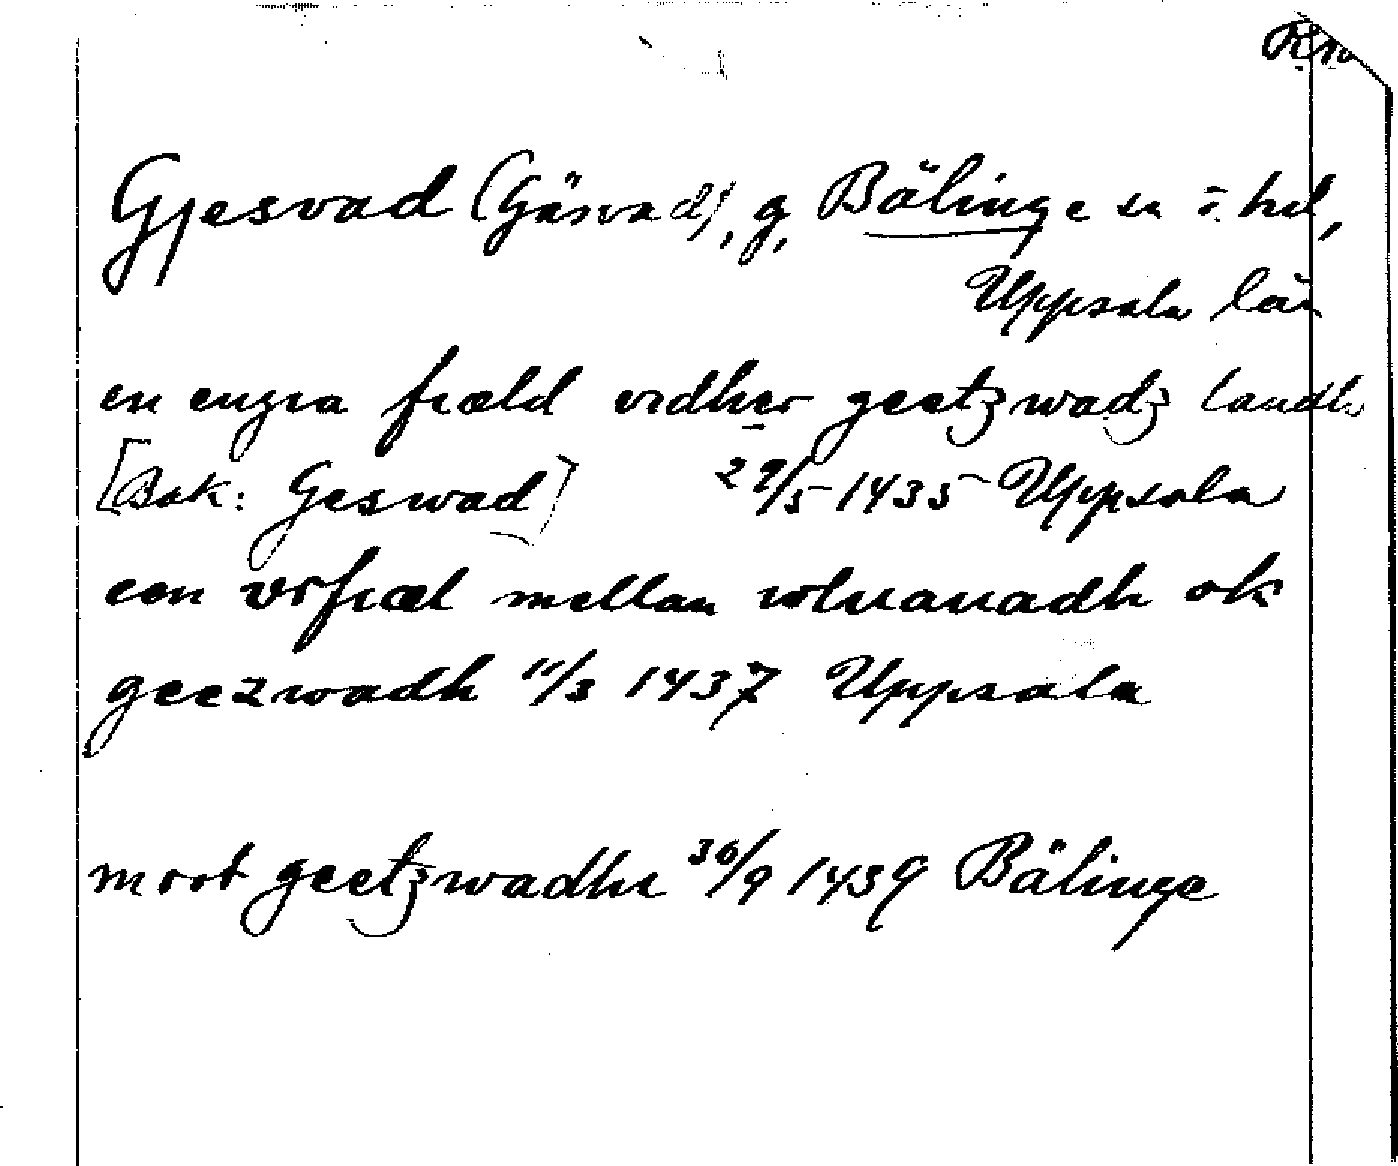 Gjesvad (Gäsvad), g, Bälinge sn o. hd,
Uppsala län
en engia fiæld vidher geetzwadz landh
[Bak: Geswad] 29/5 1435 Uppsala
een vrfiæl mellan mellan ok
geezwadh 11/3 1437 Uppsala
moot geetzwadhe 30/9 1439 Bälinge